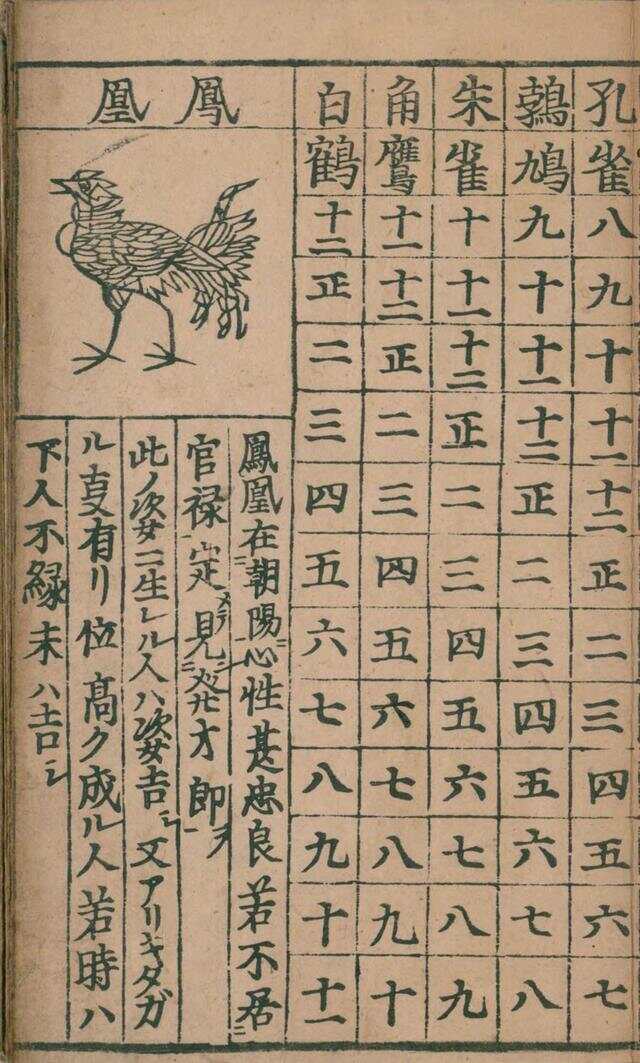 孔雀 八 九 十 十一 十二 正 二 三 四 五 六 七
鶉鳩 九 十 十一 十二 正 二 三 四 五 六 七 八
朱雀 十 十一 十二 正 二 三 四 五 六 七 八 九
角鷹 十一 十二 正 二 三 四 五 六 七 八 九 十
白鶴 十二 正 二 三 四 五 六 七 八 九 十 十一
鳳凰
鳳凰在朝陽心性甚忠良若不居
官禄定見発才郎
此ノ姿ニ生レル人ハ姿吉シ又アリキタガ
ル叓有リ位高ク成ル人若時ハ
下人不縁末ハ吉シ